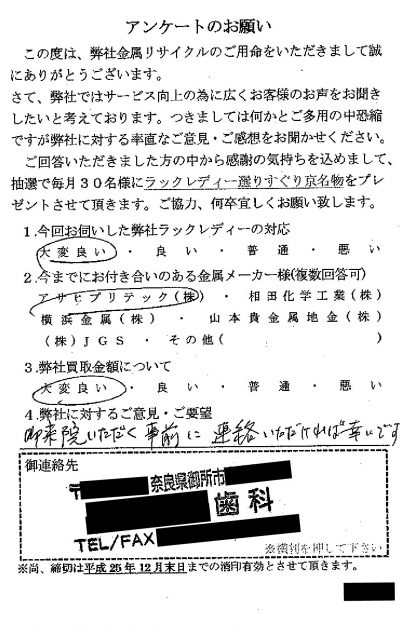 アンケートのお願い
この度は、弊社金属リサイクルのご用命をいただきまして誠
にありがとうございます。
さて、弊社ではサービス向上の為に広くお客様のお声をお聞き
したいと考えております。つきましては何かとご多用の中恐縮
ですが弊社に対する率直なご意見・ご感想をお聞かせください。
ご回答いただきました方の中から感謝の気持ちを込めまして、
抽選で毎月30名様にラックレディー選りすぐり京名物をプレ
ゼントさせて頂きます。ご協力、何卒宜しくお願い致します。
1.今回お伺いした弊社ラックレディーの対応
大変良い・良い・普通・悪い
2.今までにお付き合いのある金属メーカー様(複数回答可)
アサヒプリテック(株)・相田化学工業(株)
横浜金属(株)・山本貴金属地金(株)
(株)JGS・その他( )
3.弊社買取金額について
大変良い・良い・普通・悪い
4.弊社に対するご意見・ご要望
御来院いただく事前に連絡いただければ幸いです
御連絡先
〒 奈良県御所市
歯科
TEL/FAX
※横判を押して下さい
※尚、締切は平成25年12月末日までの消印有効とさせて頂きます。